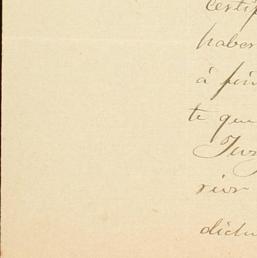 certif
haber
á fin
te que
Juz
rior
dicho